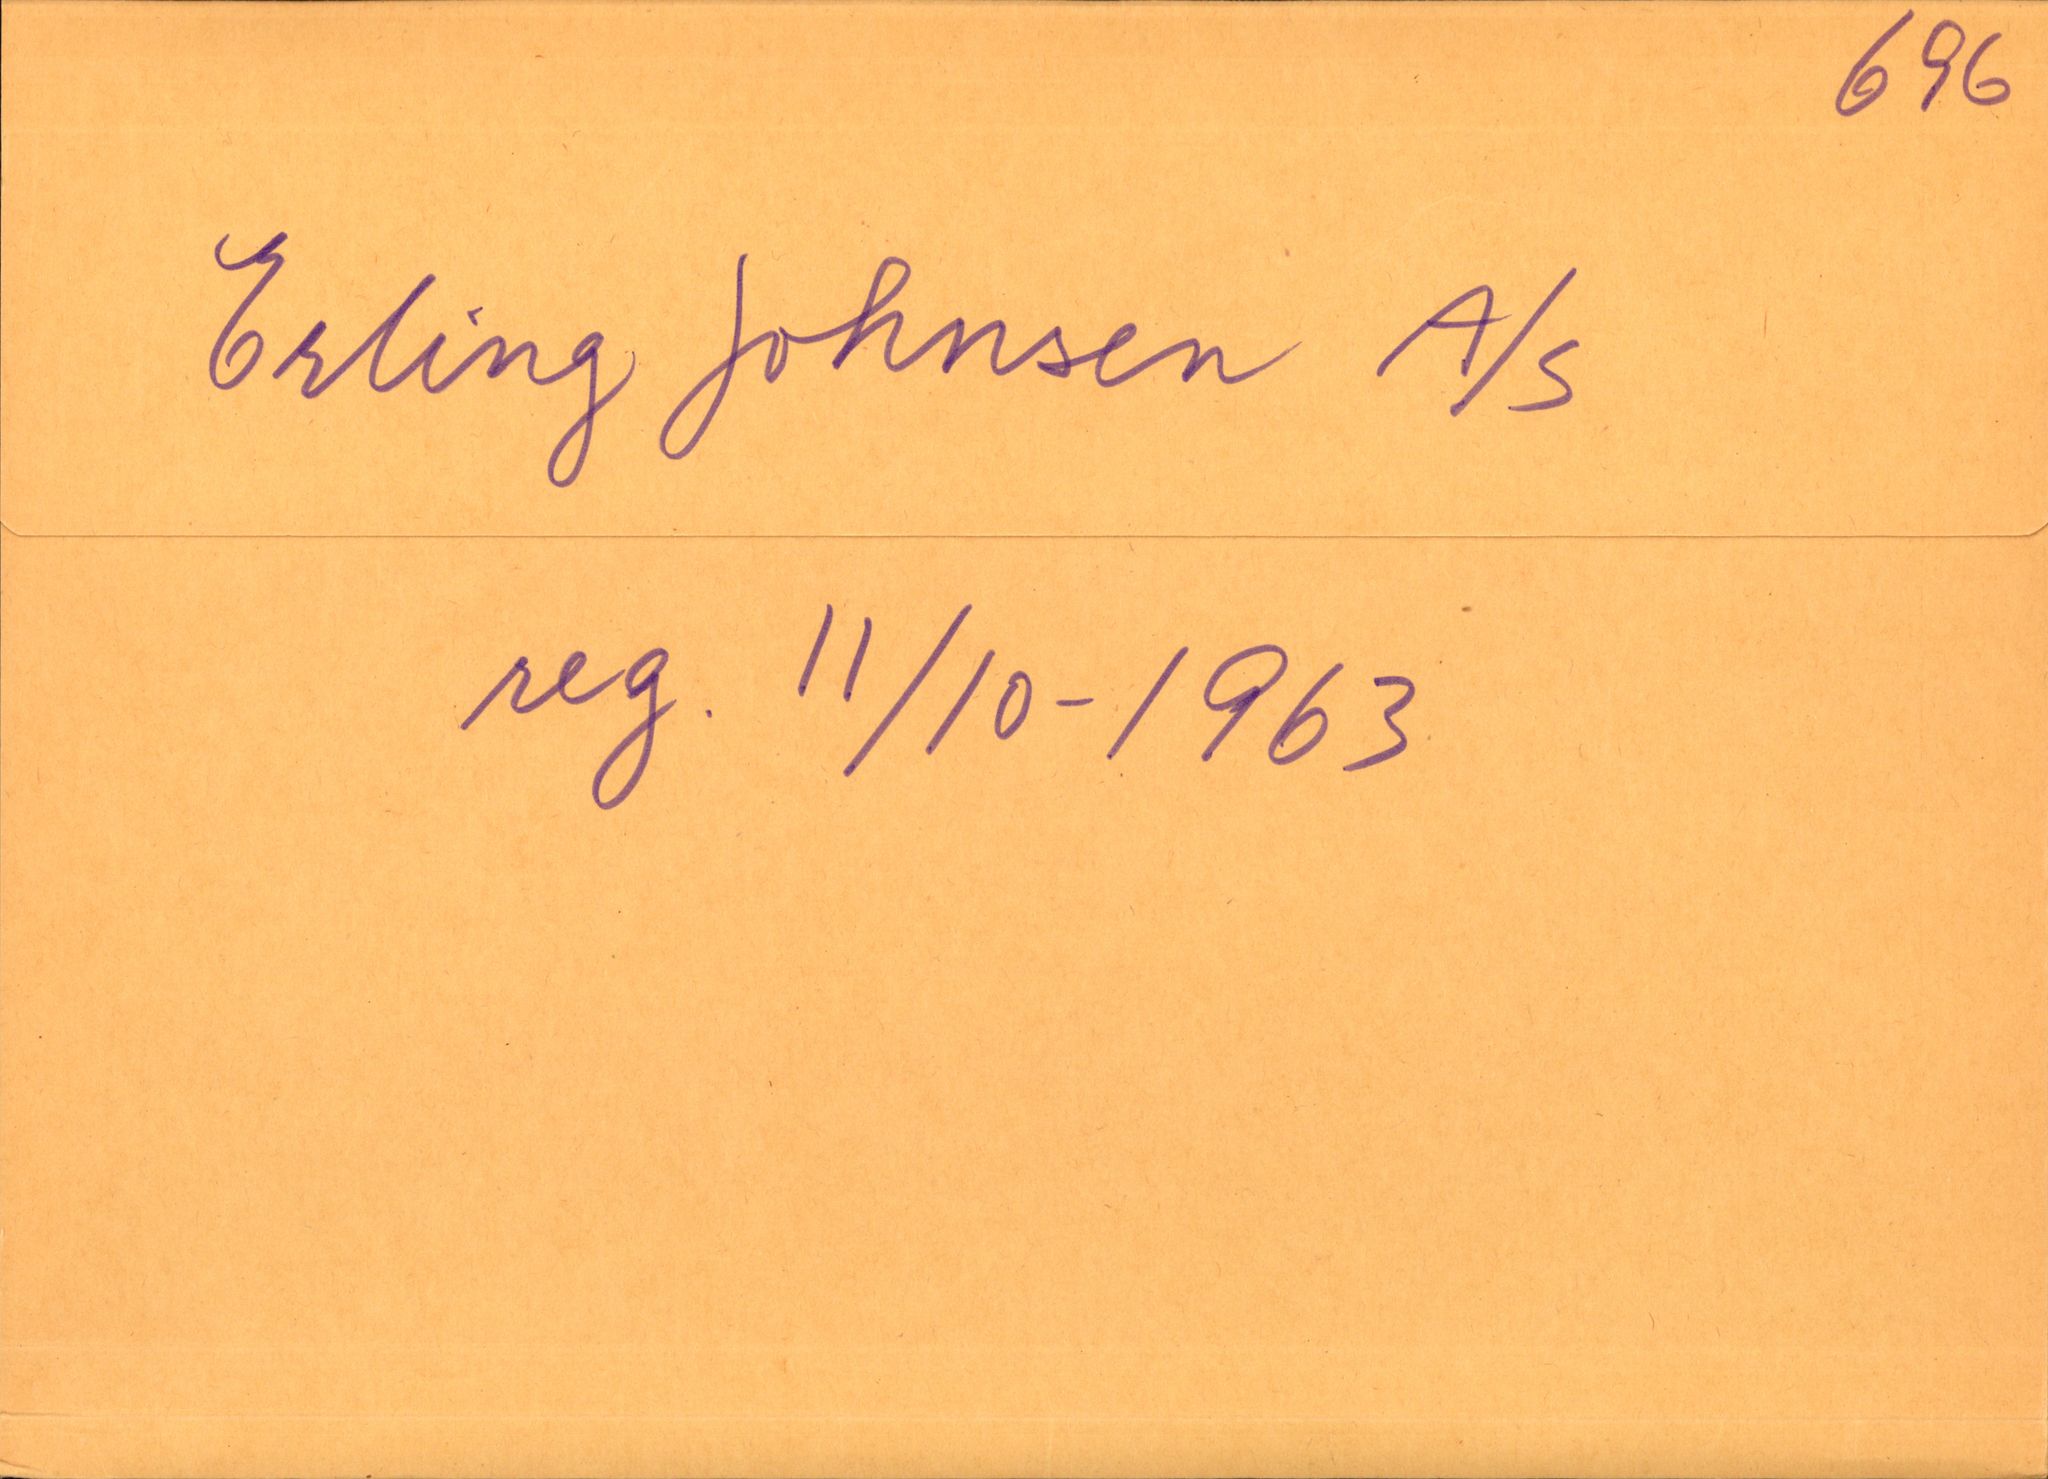 696
Erling Johnsen A/S
reg. 11/10-1963